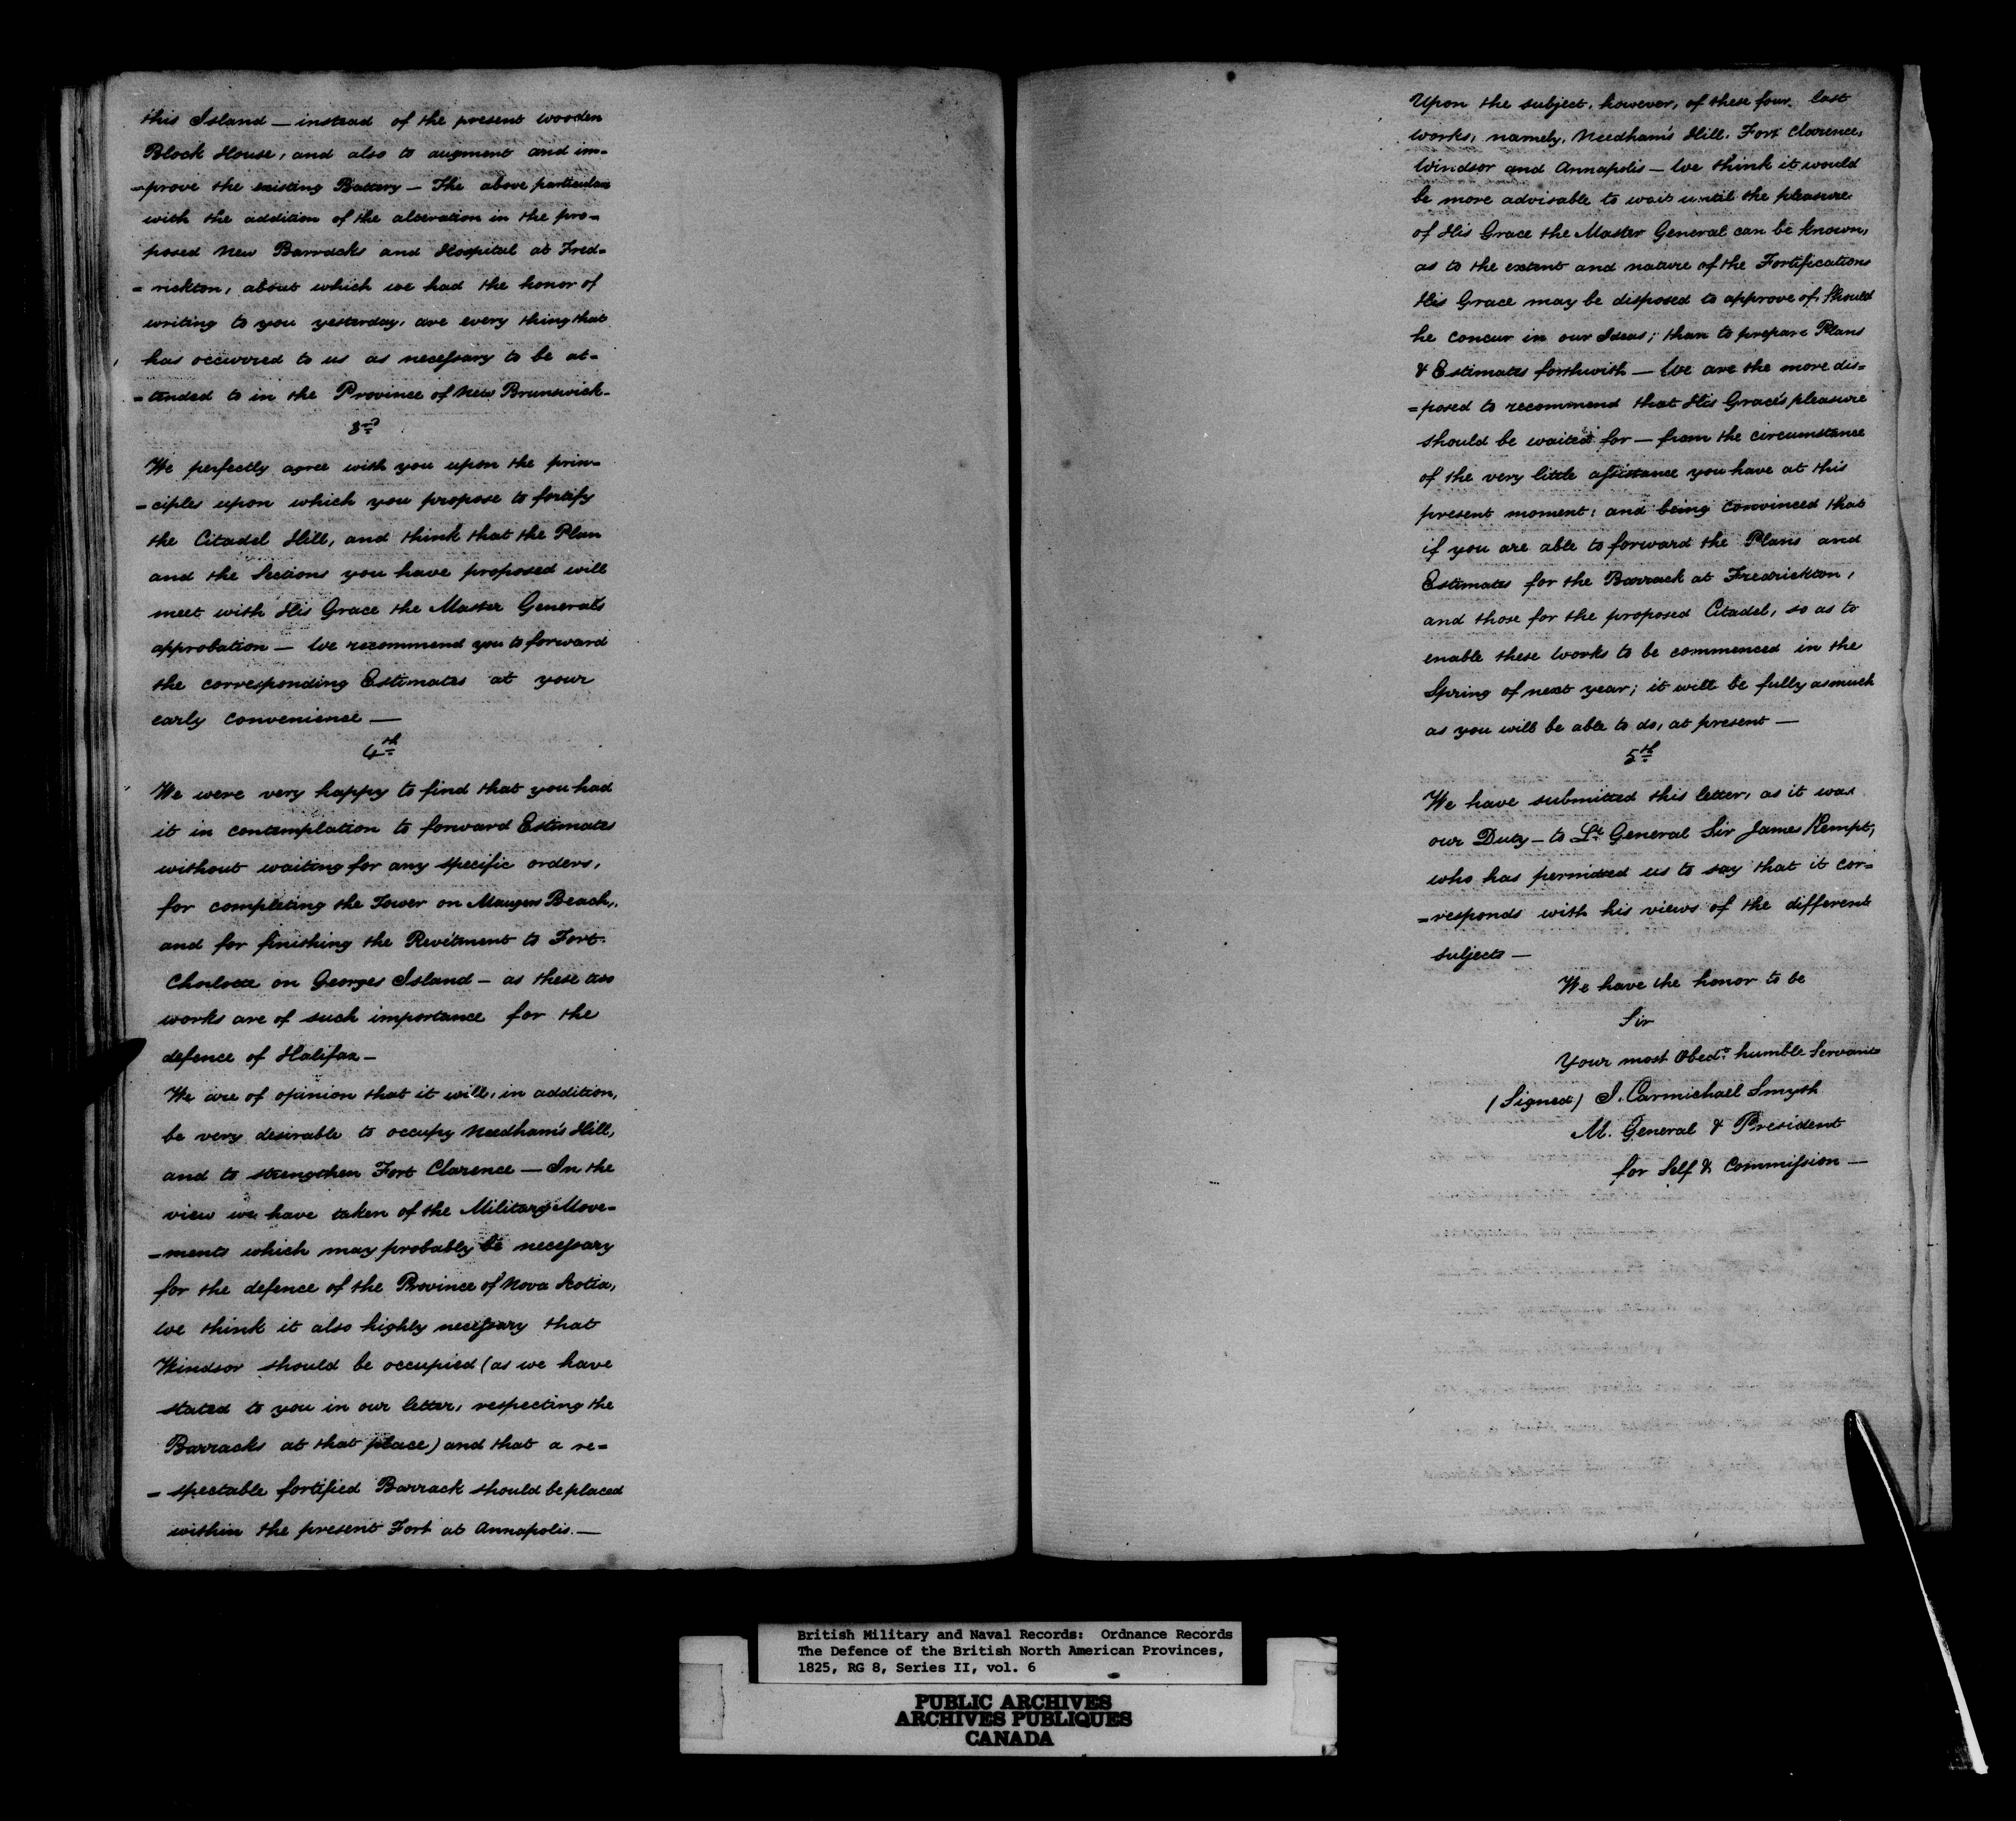 this Island — instead of the present wooden
Block House, and also to augment and im-
-prove the existing Battery — The above particulars
with the addition of the alteration in the pro=
posed New Barracks and Hospital at Fred=
= rickton, about which we had the honor of
writing to you yesterday, are every thing that
has occurred to us as necessary to be at=
= tended to in the Province of New Brunswick-
3rd
We perfectly agree with you upon the prin=
= ciples upon which you propose to fortify
the Citadel Hill, and think that the Plan
and the Sections you have proposed will
meet with His Grace the Master Generals
approbation — We recommend you to forward
the corresponding Estimates at your
early convenience —
4th
We were very happy to find that you had
it in contemplation to forward Estimates
without waiting for any specific orders,
for completing the Tower on Maugers Beach,
and for finishing the Revetment to Fort
Charlotte on Georges Island — as these two
works are of such importance for the
defence of Halifax —
We are of opinion that it will, in addition,
be very desirable to occupy Needham's Hill,
and to strengthen Fort Clarence — In the
view we have taken of the Military Move=
=ments which may probably be necessary
for the defence of the Province of Nova Scotia,
we think it also highly necessary that
Windsor should be occupied (as we have
stated to you in our letter, respecting the
Barracks at that place) and that a re=
= spectable fortified Barrack should be placed
within the present Fort at Annapolis. —
Upon the subject, however, of these four last
works, namely, Needham's Hill, Fort Clarence,
Windsor and Annapolis — We think it would
be more advisable to wait until the pleasure
of His Grace the Master General can be known,
as to the extent and nature of the Fortifications
His Grace may be disposed to approve of, Should
he concur in our Ideas; than to prepare Plans
& Estimates forthwith — We are the more dis=
=posed to recommend that His Grace's pleasure
should be waited for — from the circumstance
of the very little assistance you have at this
present moment; and being convinced that
if you are able to forward the Plans and
Estimates for the Barrack at Fredrickton,
and those for the proposed Citadel, so as to
enable these Works to be commenced in the
Spring of next year; it will be fully as much
as you will be able to do, at present —
5th
We have submitted this letter, as it was
our Duty — to Lt General Sir James Kempt,
who has permitted us to say that it cor=
=responds with his views of the different
subjects —
We have the honor to be
Sir
Your most Obedt humble Servants
(Signed) J. Carmichael Smyth
M. General & President
for Self & Commission —
British Military and Naval Records: Ordnance Records
The Defence of the British North American Provinces,
1825, RG 8, Series II, vol. 6
PUBLIC ARCHIVES
ARCHIVES PUBLIQUES
CANADA